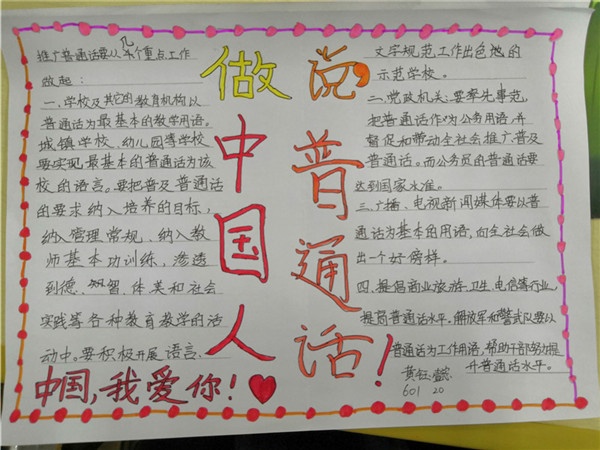 说普通话!
做中国人
推广普通话要从几个重点工作
做起：
一.学校及其它的教育机构以
普通话为最基本的教学用语。
城镇学校、幼儿园等学校
要实现最基本的普通话为该
校的语言。要把普及普通话
的要求纳入培养的目标，
纳入管理常规、纳入教
师基本功训练，渗透
到德、智、体、美和社会
实践等各种教育教学的活
动中。要积极开展语言、
中国，我爱你！
文字规范工作出色地的
示范学校。
二、党政机关：要率先事范，
把普通话作为公务用语，并
督促和带动全社会推广、普及
普通话。而公务员的普通话要
达到国家水准。
三.广播、电视新闻媒体要以普
通话为基本的用语，向全社会做
出一个好榜样。
四.提倡商业、旅游、卫生、电信等行业，
提高普通话水平。解放军和警武队要以
普通话为工作用语，帮助干部努力提
升普通话水平。
黄钰
601 20